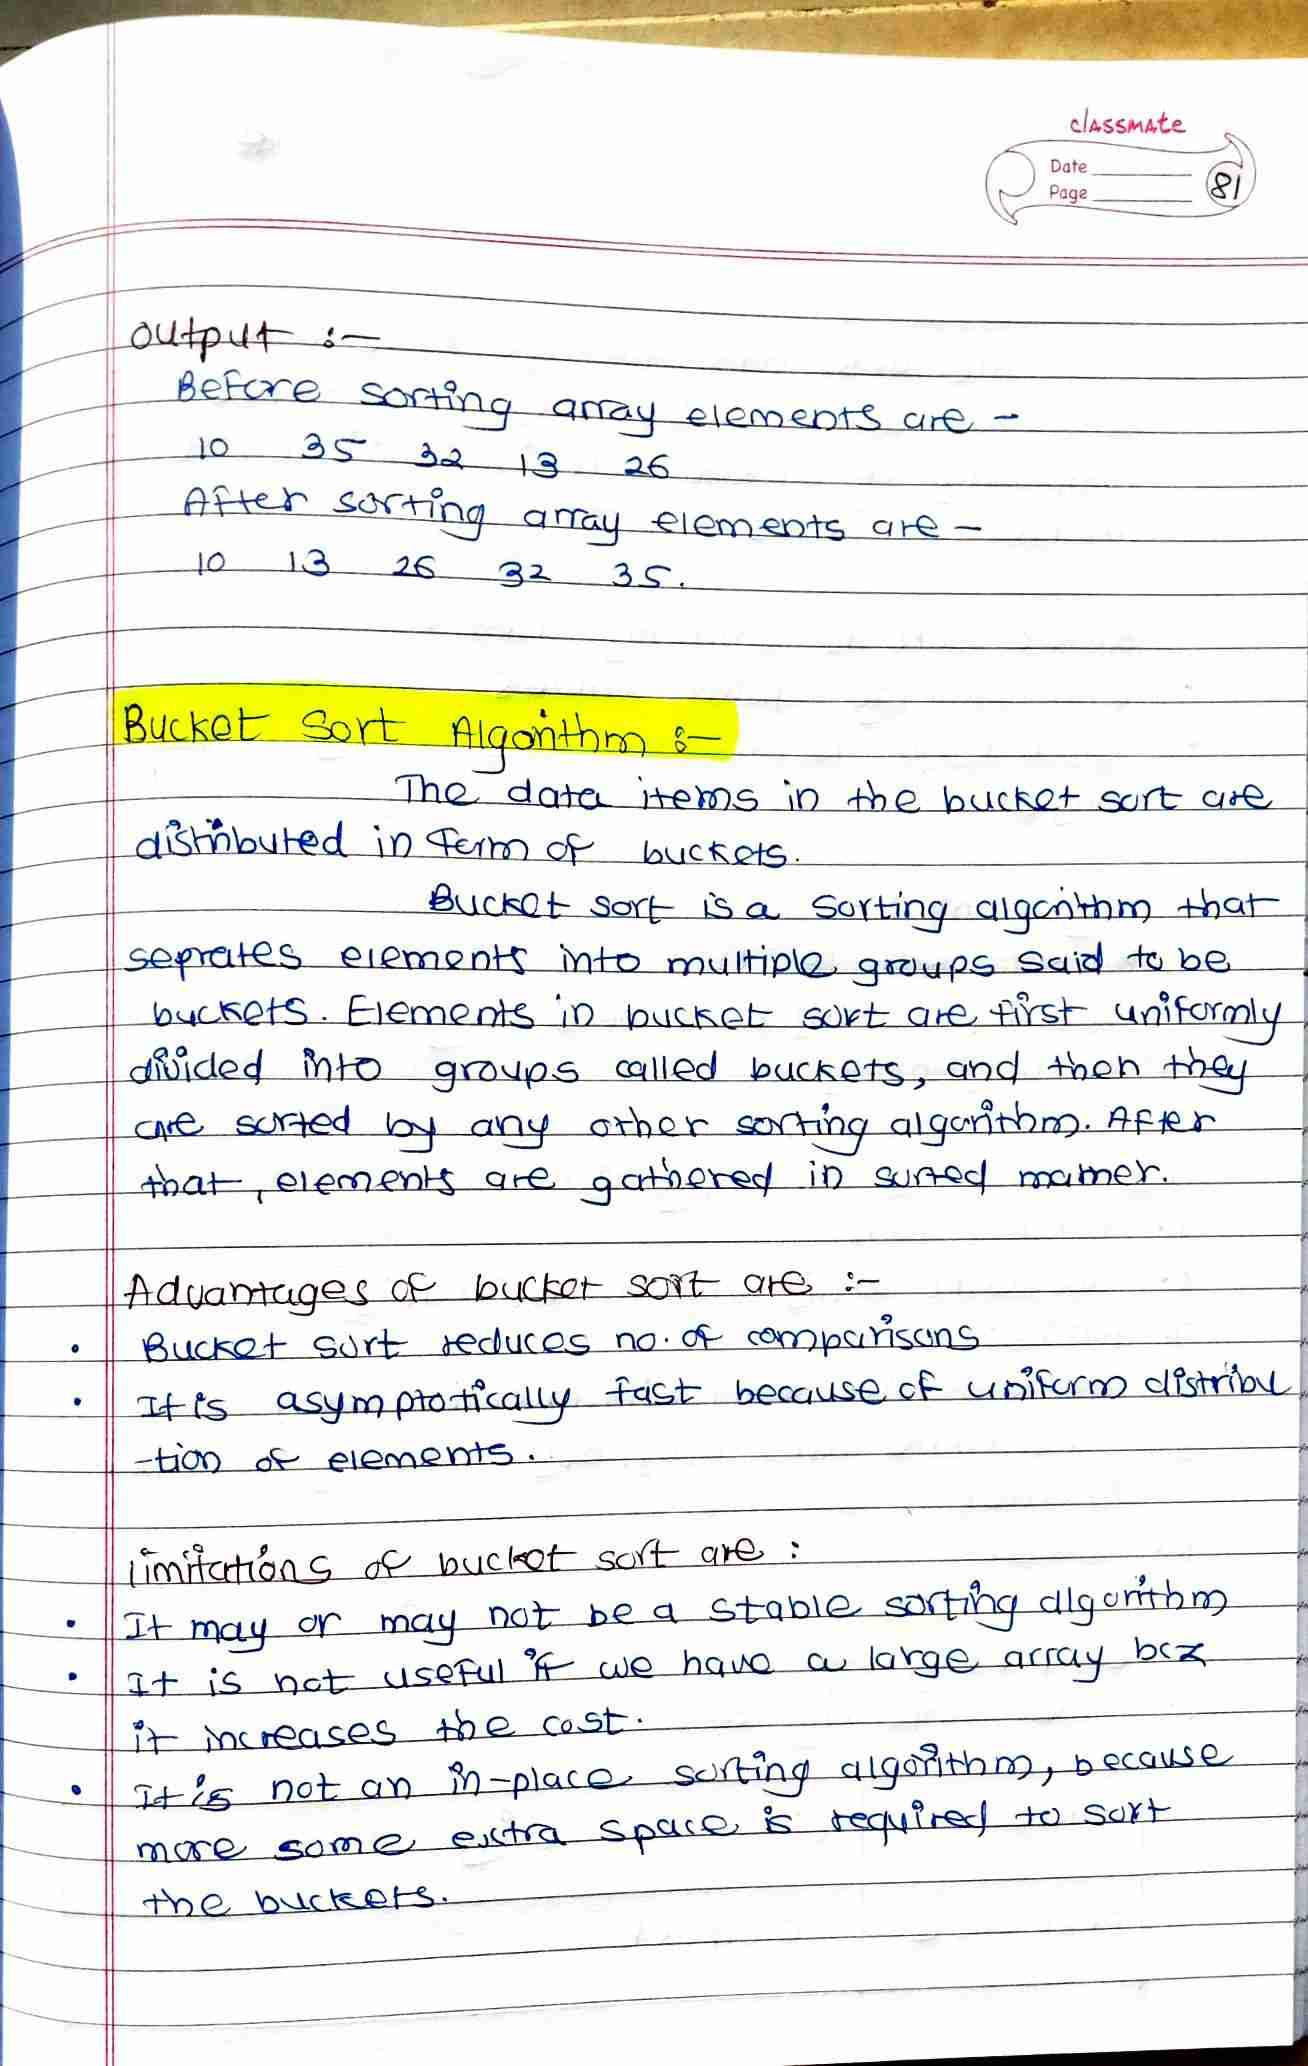 classmate
Date
Page
81
Output :-
Before sorting array elements are -
10 35 32 13 26
After sorting array elements are -
10 13 26 32 35.
Bucket Sort Algorithm :-
The data items in the bucket sort are
distributed in form of buckets.
Bucket sort is a sorting algorithm that
seprates elements into multiple groups said to be
buckets. Elements in bucket sort are first uniformly
divided into groups called buckets, and then they
are sorted by any other sorting algorithm. After
that, elements are gathered in sorted manner.
Advantages of bucket sort are :-
• Bucket sort reduces no. of comparisons
• It is asymptotically fast because of uniform distribu
-tion of elements.
limitations of bucket sort are :
• It may or may not be a stable sorting algorithm
• It is not useful if we have a large array bcz
it increases the cost.
• It is not an in-place sorting algorithm, because
more some extra space is required to sort
the buckets.